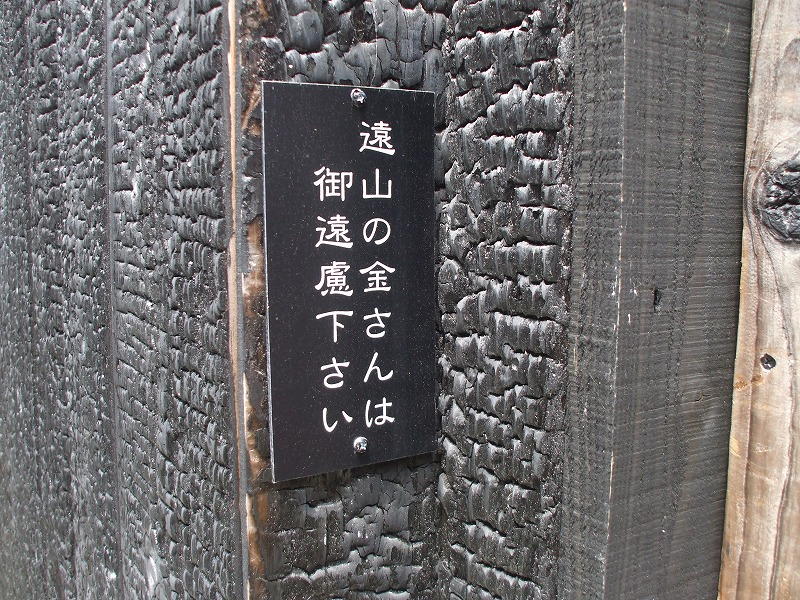 遠山の金さんは
御遠慮下さい